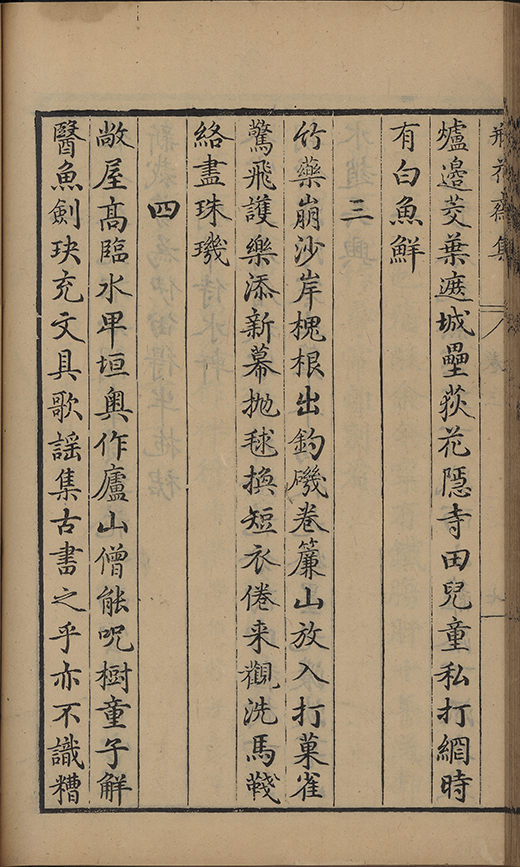 瓶花齋集
爐邊茭葉遮城壘荻花隱寺田兒童私打網時
有白魚鮮
三
竹藥崩沙岸槐根出釣磯卷簾山放入打菓雀
驚飛護樂添新幕抛毬換短衣倦来觀洗馬韉
絡盡珠璣
四
敞屋髙臨水卑垣奥作廬山僧能呪樹童子解
醫魚劍玦充文具歌謡集古書之乎亦不識糟